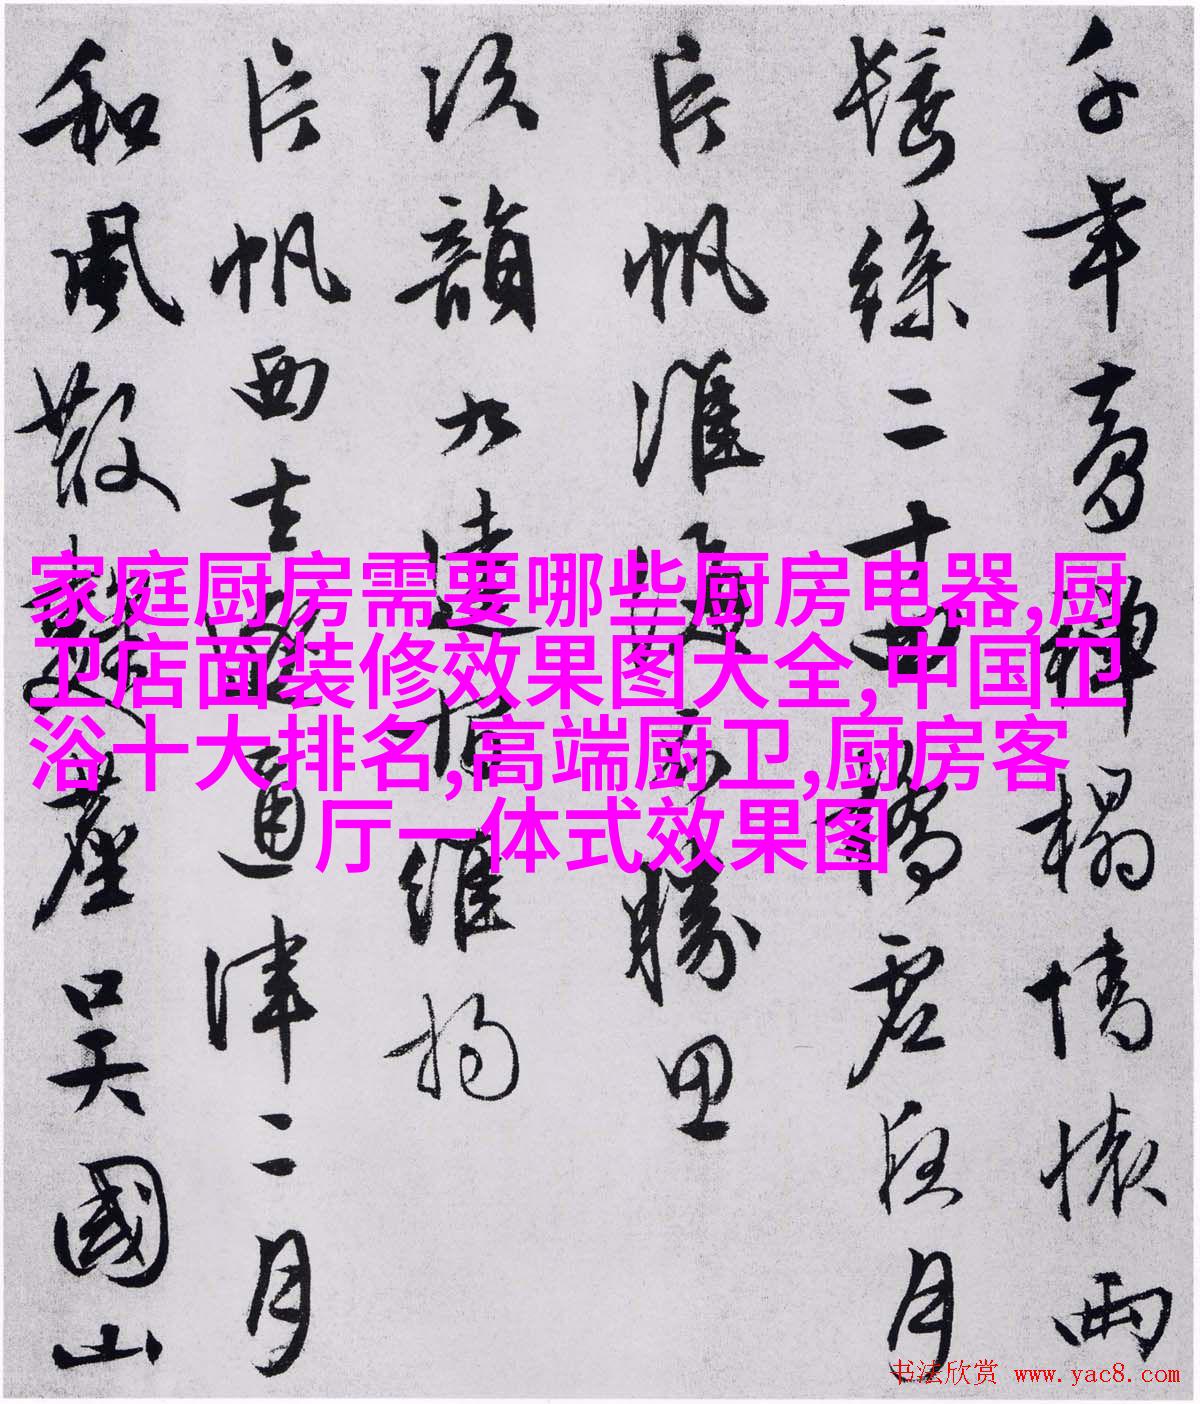 家庭厨房需要哪些厨房电器,厨
卫店面装修效果图大全,中国卫
浴十大排名,高端厨卫,厨房客
厅一体式效果图
千年高禪榻情懷雨
絲二十四橋夜月
片帆淮勝
次韻九達維揚
片帆西去路通津二月
和風散麹塵吳國山
书法欣赏 www.yac8.com